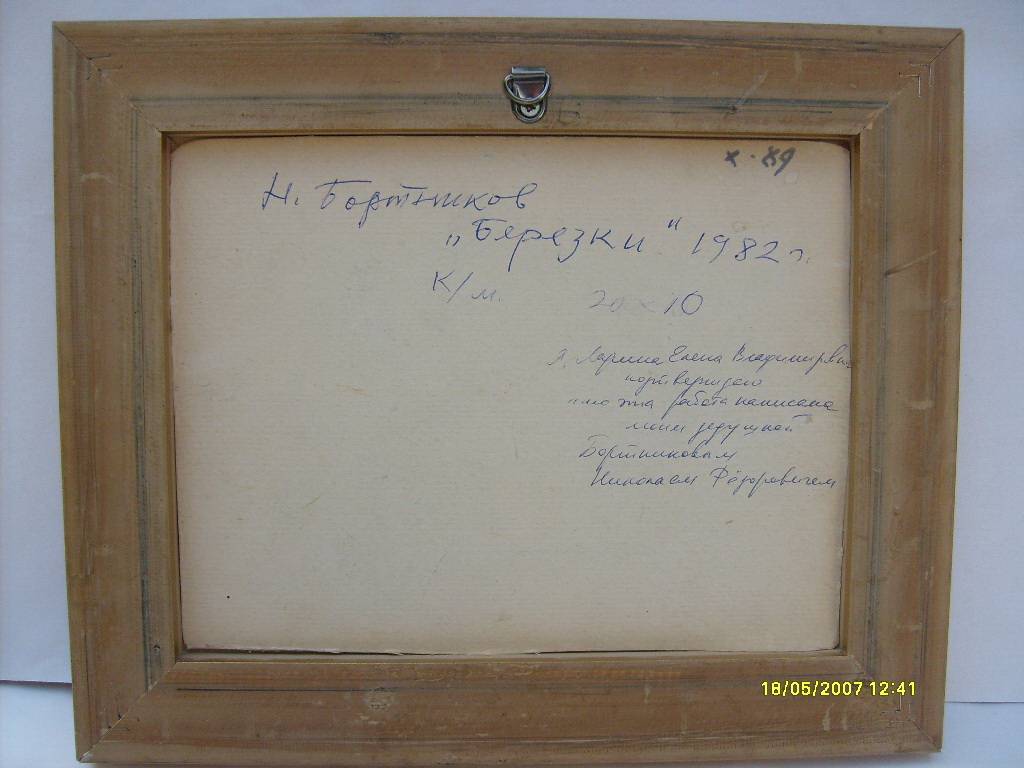 х. 89
Н. Бортников
„Березки" 1982 г.
К/м. 20 × 10
Я, Ларина Елена Владимировна
подтверждаю
что эта работа написана
моим дедушкой
Бортниковым
Николаем Фёдоровичем
18/05/2007 12:41